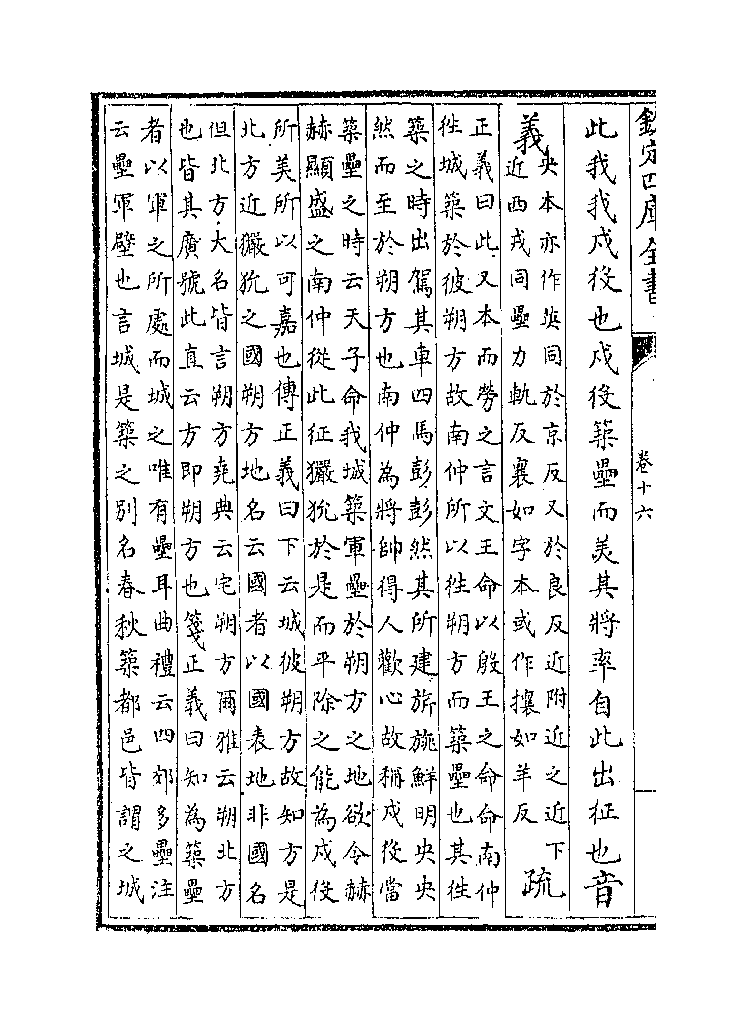 欽定四庫全書
卷十六
此我我戍役也戍役築壘而美其將率自此出征也音
義央本亦作英同於京反又於良反近附近之近下
近西戎同壘力軌反襄如字本或作攘如羊反
疏
正義曰此又本而勞之言文王命以殷王之命命南仲
往城築於彼朔方故南仲所以往朔方而築壘也其往
築之時出駕其車四馬彭彭然其所建旂旐鮮明央央
然而至於朔方也南仲為將帥得人歡心故稱戍役當
築壘之時云天子命我城築軍壘於朔方之地欲令赫
赫顯盛之南仲從此征玁狁於是而平除之能為戍役
所美所以可嘉也傳正義曰下云城彼朔方故知方是
北方近玁狁之國朔方地名云國者以國表地非國名
但北方大名皆言朔方堯典云宅朔方爾雅云朔北方
也皆其廣號此直云方即朔方也箋正義曰知為築壘
者以軍之所處而城之唯有壘耳曲禮云四郊多壘注
云壘軍壁也言城是築之別名春秋築都邑皆謂之城